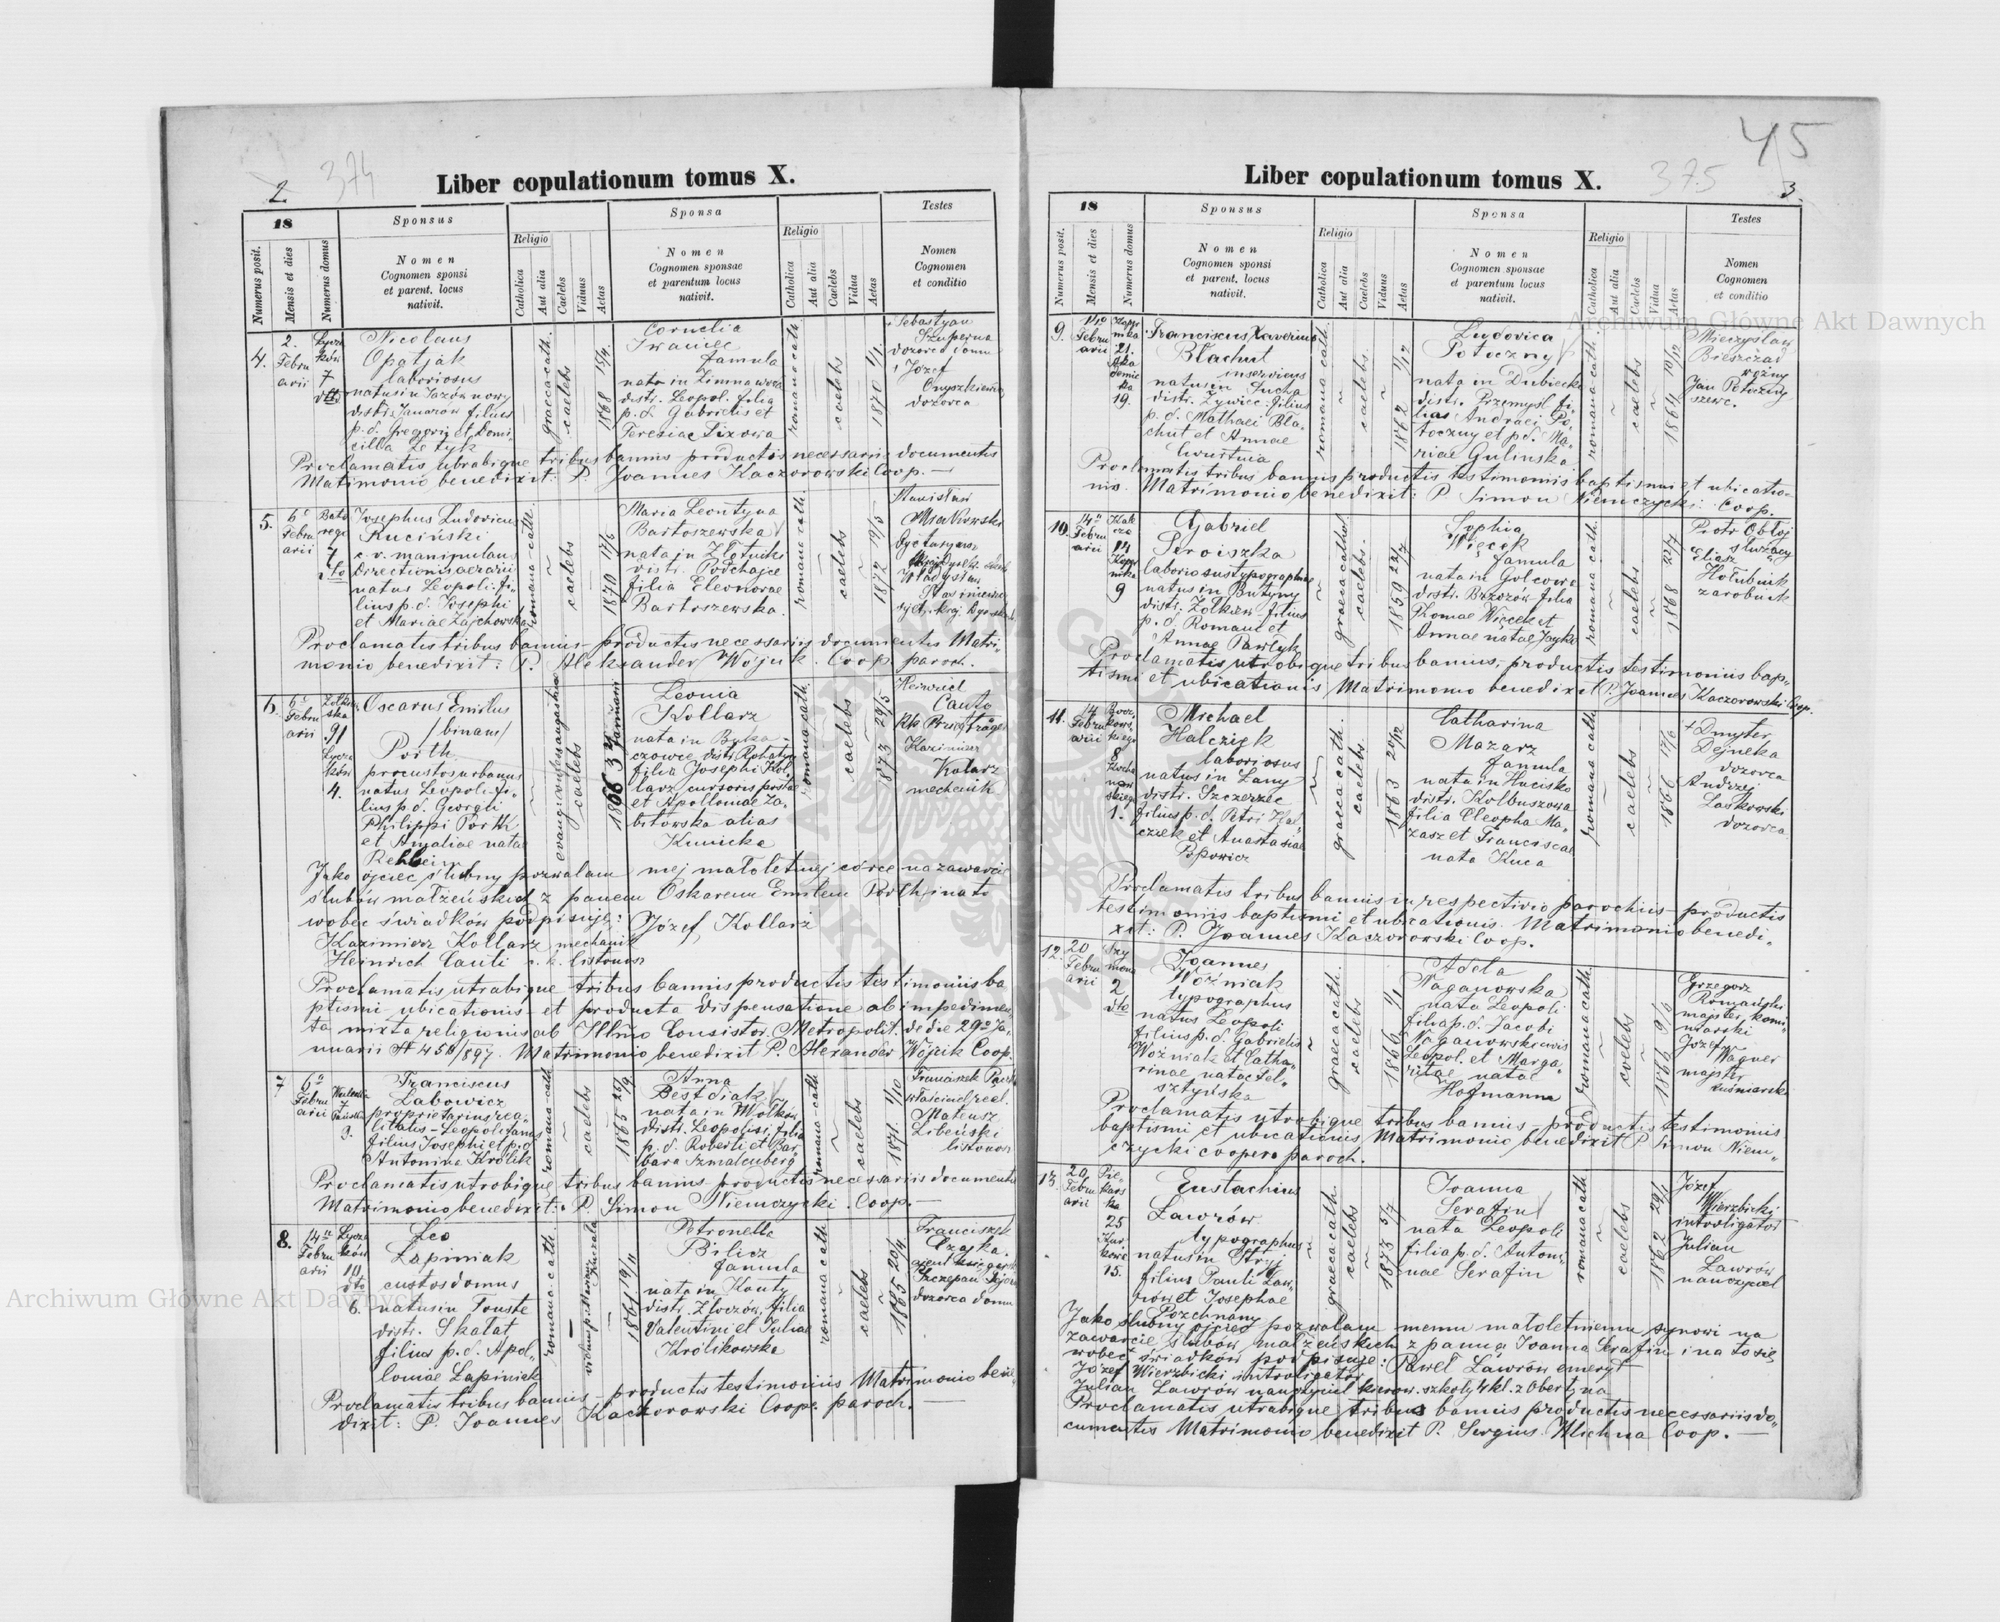 2
374
Liber copulationum tomus X.
18
Sponsus
Sponsa
Testes
Numerus posit.
Mensis et dies
Numerus domus
Nomen
Cognomen sponsi
et parent. locus
nativit.
Religio
Catholica
Aut alia
Caelebs
Viduus
Aetas
Nomen
Cognomen sponsae
et parentum locus
nativit.
Religio
Catholica
Aut alia
Caelebs
Vidua
Aetas
Nomen
Cognomen
et conditio
4.
2.
Febru
arii
7
Nicolaus
Opatjak
laboriosus
natus in
distr. Janorow filius
p. d. Gregorii et Domi-
cilla
graeca cath.
caelebs
1868
Cornelia
Iwaniec
famula
nata in Zimnawoda
distr. Leopol. filia
p. d. Gabrielis et
Teresiae
romana cath
caelebs
1870
Sebastyan
Szuperna
dozorca domu
Józef
Onyszkiewicz
dozorca
Proclamatis utrabique tribus bannis productis necessariis documentis
Matrimonio benedixit: P. Joannes Kaczorowski Coop. —
5.
Febru
arii
Josephus Ludovicus
Ruciński
c. r. manipulans
Directionis aerarii
natus Leopoli. fi-
lius p. d. Josephi
et Mariae Zajchowska
romana-cath.
caelebs
1870
Maria Leontyna
Bartoszewska
nata in Złotniki
distr. Podhajce
filia Eleonorae
Bartoszewska.
romana cath
caelebs
1872
Stanisław
Władysław
Proclamatis tribus bannis - productis necessariis documentis Matri-
monio benedixit: P. Aleksander Wójcik. Coop. paroch.
6.
Febru
arii
91
4.
Oscarus Emilus
/binans/
Porth
natus Leopoli. fi-
lius p. d. Georgii
Philippi Porth
et Amaliae nata
Rehbein
caelebs
1866
Leonia
Kollarz
nata in
filia Josephi Kol-
larz cursoris postae
et Apolloniae Za-
alias
Kunicka
romana cath.
caelebs
1873
Heinrich
Kazimierz
Kolarz
mechanik
Jako ojciec ślubny pozwalam mej małoletniej córce na zawarcie
ślubów małżeńskich z panem Oskarem Emilem Porth, i na to
wobec świadków podpisuję: Józef Kollarz
Kazimierz Kollarz mechanik
Heinrich Cauti c. k. listonosz
Proclamatis utrabique tribus bannis productis testimoniis ba
ptismi - ubicationis - et producta dispensatione ab impedimen-
to mixta religionis ab Illmo Consistor. Metropolit. de die 29a Ja-
nuarii
Matrimonio benedixit P. Alexander Wójcik Coop.
7
Febru
arii
9.
Franciscus
Labowicz
proprietarius rea-
litatis - Leopolitanus
filius Josephi et p. d.
Antonina Królik
romana-cath
caelebs
1865
Anna
Bestdiak
nata in Wolków
distr. Leopolisi, filia
p. d. Roberti et Bar-
bara Szmalenberg
romano-cath
caelebs
1871.
Franciszek
właściciel real.
Mateusz
Libeński
listonosz
Proclamatis utrobique tribus bannis productis necessariis documentis
Matrimonio benedixit: P. Simon Niemczycki. Coop. —
8.
14a
Febru
arii
10
dto
6.
Leo
Łapiniak
custos domus
natus in Touste
distr. Skałat,
filius p. d. Apol-
loniae Łapiniak
romana-cath.
1861 19/11
Petronella
Bilicz
famula
nata in Konty
distr. Złoczów, filia
Valentini et Julia
Królikowska
romana cath
caelebs
1865
Franciszek
Czajka.
Szczepan
dozorca domu
Proclamatis tribus bannis - productis testimoniis Matrimonio bene-
dixit: P. Joannes Kaczorowski Coop. paroch. —
45
375
3.
Liber copulationum tomus X.
18
Sponsus
Sponsa
Testes
Numerus posit.
Mensis et dies
Numerus domus
Nomen
Cognomen sponsi
et parent. locus
nativit.
Religio
Catholica
Aut alia
Caelebs
Viduus
Aetas
Nomen
Cognomen sponsae
et parentum locus
nativit.
Religio
Catholica
Aut alia
Caelebs
Vidua
Aetas
Nomen
Cognomen
et conditio
9.
Febru
arii
21.
19.
Franciscus Xaverius
Błachut
inserviens
natus in Sucha
distr. Żywiec. filius
p. d. Mathaei Bła-
chut et Annae
romana cath.
caelebs.
1862
Ludovica
Potoczny
nata in Dubiecko
distr. Przemyśl fi-
lia Andreae Po-
toczny et p. d. Ma-
riae Gulinska
romana-cath.
caelebs
1864 10/12
Mieczysław
Bieszczad
woźny
Jan Potoczny
szewc.
Proclamatis tribus bannis productis testimoniis baptismi et ubicatio-
nis. Matrimonio benedixit: P. Simon Niemczycki. Coop.
10.
14a
Febru
arii
9
Gabriel
Peroiszka
laboriosus typographiae
natus in Butyny
distr. Żolkiew filius
p. d. Romani et
Annae Pawłyk
graeca cathol.
caelebs.
1859
Sophia
Więcek
famula
nata in Golcowa
distr. Brzozów filia
Thomae Więcek et
Annae natae
romana cath.
caelebs
1868 22/7
Piotr
służący
Eliasz
Hołubnik
zarobnik
Proclamatis utrobique tribus bannis, productis testimoniis bap-
tismi et ubicationis Matrimonio benedixit P. Joannes Kaczorowski Coop.
11.
14
Febru
arii
8
1.
Michael
Halcziek
laboriosus
natus in Łany
distr. Szczerzec
filius p. d. Petri Hal-
cziek et Anastasiae
Popowicz
graeca-cath.
caelebs.
1863 20/12
Catharina
Mazarz
famula
nata in Hucisko
distr. Kolbuszowa
filia Cleopha Ma-
zasz et Franciscae
nata Kuca
romana cath.
caelebs
1866 17/6
+ Dmyter
Dejneka
dozorca
Andrzej
Laskowski
dozorca
Proclamatis tribus bannis in respectivis parochiis - productis
testimoniis baptismi et ubicationis. Matrimonio benedi-
xit: P. Joannes Kaczorowski Coop.
12.
20
Febru
arii
2
dto
Joannes
Woźniak
typographus
natus Leopoli
filius p. d. Gabrielis
Woźniak et Catha-
rinae natae Fel-
sztyńska
graeca cath.
caelebs
1866 1/1
Adela
Naganowska
nata Leopoli
filia p. d. Jacobi
Naganowskiensis
Leopol. et Marga-
ritae natae
Hofmann
romana cath
caelebs
1866 9/8
Grzegorz
Romański
majster komi-
niarski
Józef
Wagner
majster
kuśnierski
Proclamatis utrobique tribus bannis, productis testimoniis
baptismi et ubicationis Matrimonio benedixit P. Simon Niem-
czycki cooper. paroch.
13.
20
Febru
arii
25
15.
Eustachius
Ławrów
typographus
natus in Stryj
filius Pauli Ław-
rów et Josephae
Pozchnany
graeca-cath.
caelebs
1873 5/7
Joanna
Serafin
nata Leopoli
filia p. d. Antoni-
nae Serafin
romana cath
caelebs
1862 29/1
Józef
Wierzbicki
introligator
Julian
Ławrów
nauczyciel
Jako ślubny ojciec pozwalam memu małoletniemu synowi na
zawarcie ślubów małżeńskich z panną Joanna Serafin i na to się
wobec świadków podpisuję: Paweł Ławrów emeryt
Józef Wierzbicki introligator
Julian Ławrów nauczyciel kierow. szkoły 4 kl. z Obertyna
Proclamatis utrabique tribus bannis productis necessariis do-
cumentis Matrimonio benedixit P. Sergius Michna Coop. —
Archiwum Główne Akt Dawnych
Archiwum Główne Akt Dawnych